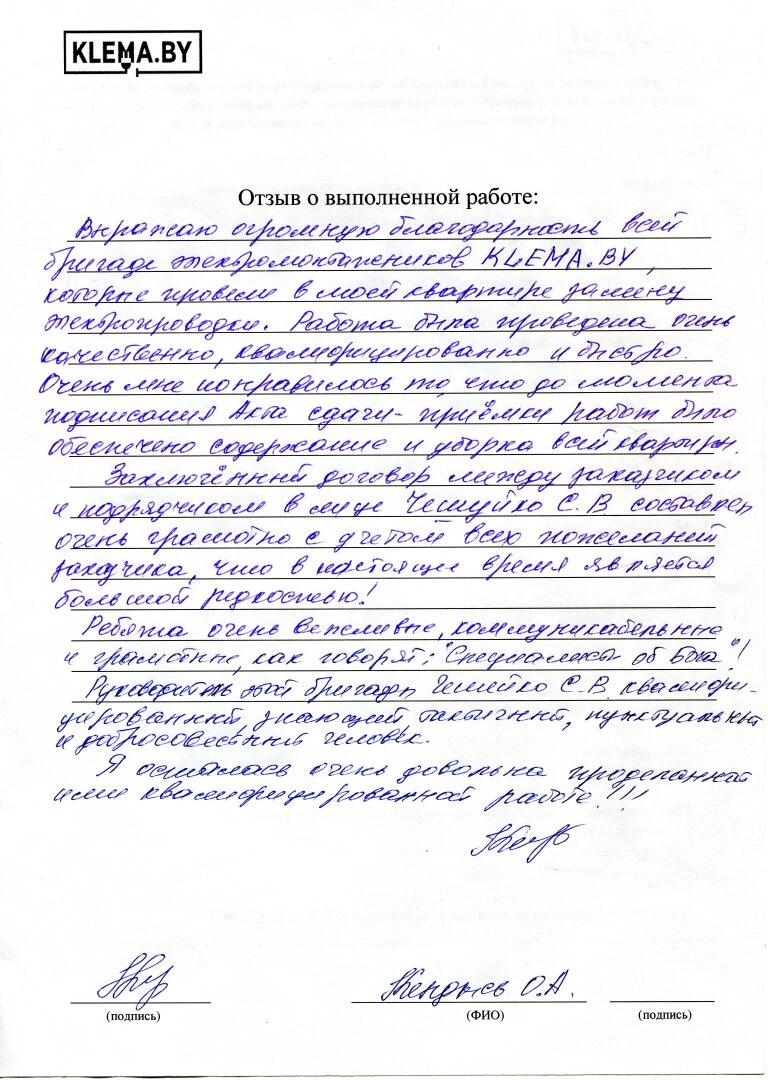 KLEMA.BY
Отзыв о выполненной работе:
Выражаю огромную благодарность всей
бригаде электромонтажников KLEMA.BY,
которые провели в моей квартире замену
электропроводки. Работа была проведена очень
качественно, квалифицированно и быстро.
Очень мне понравилось то, что до момента
подписания Акта сдачи-приёмки работ было
обеспечено содержание и уборка всей квартиры.
Заключённый договор между заказчиком
и подрядчиком в лице С.В составлен
очень грамотно с учетом всех пожеланий
заказчика, что в настоящее время является
большой редкостью!
Ребята очень вежливые, коммуникабельные
и грамотные, как говорят: "Специалисты от Бога"!
Руководитель этой бригады С.В. квалифи-
цированный, знающий, тактичный, пунктуальный
и добросовестный человек.
Я осталась очень довольна проделанной
ими квалифицированной работе!!!
О.А.
(подпись)
(ФИО)
(подпись)